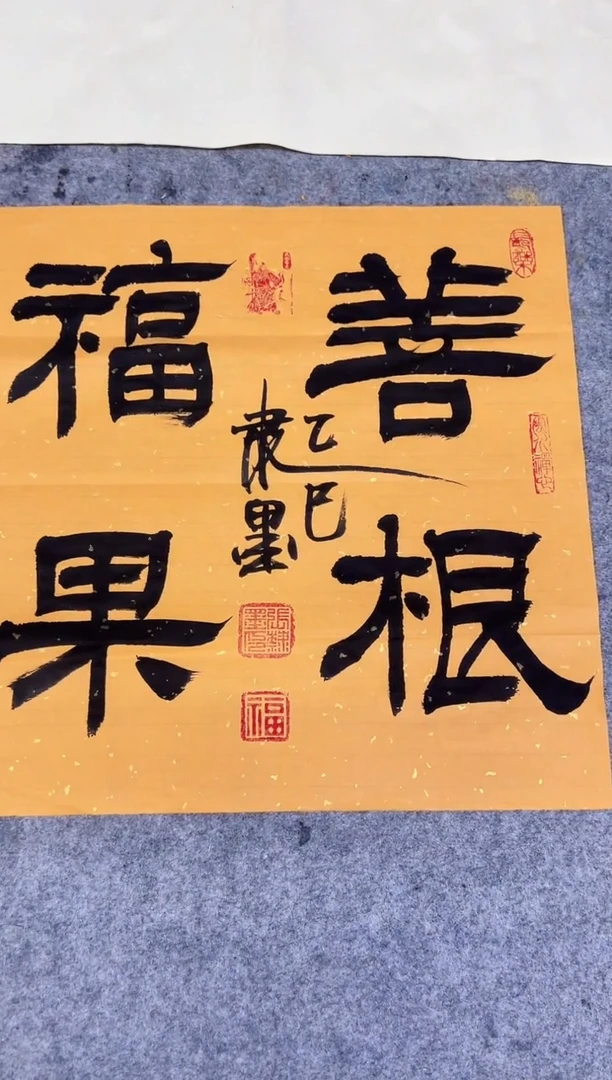 善根
乙巳
墨
福
福果